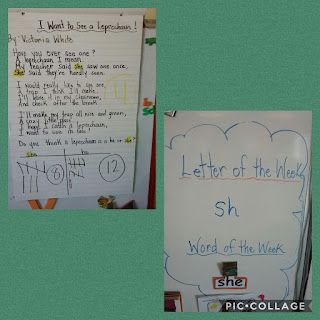 I Want to See a Leprechaun!
By: Victoria White
Have you ever seen one?
A leprechaun I mean.
My teacher said she saw one once,
She said they're hardly seen.
I would really like to see one,
A trap I think I'll make
I'll leave it in my classroom,
And check after the break.
I'll make my trap all nice and green,
A cozy little place,
I hope I catch a leprechaun,
I want to see its face!
Do you think a leprechaun is a he or she?
she
he
8
12
Letter of the Week
sh
Word of the Week
she
PIC•COLLAGE